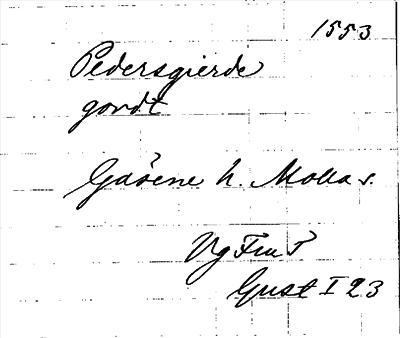 1553
Pedersgierde
gordt
Gaasene h. Molla s.
Vg Fru P
Gust I 23